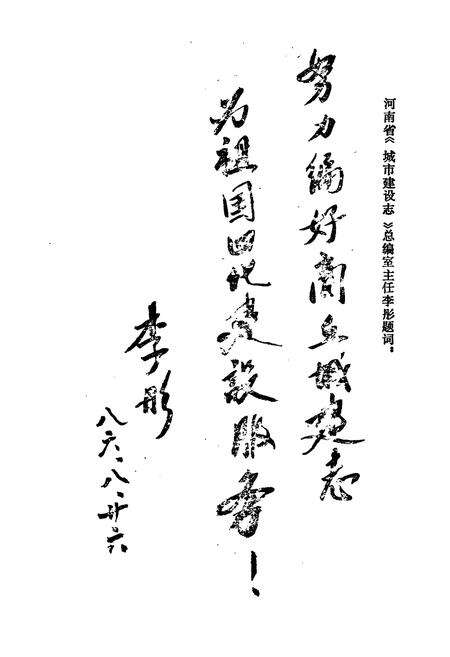 河南省《城市建设志》总编室主任李彤题词：
努力编好商丘城建志
为祖国四化建設服务！
李彤
八六、八、廿六